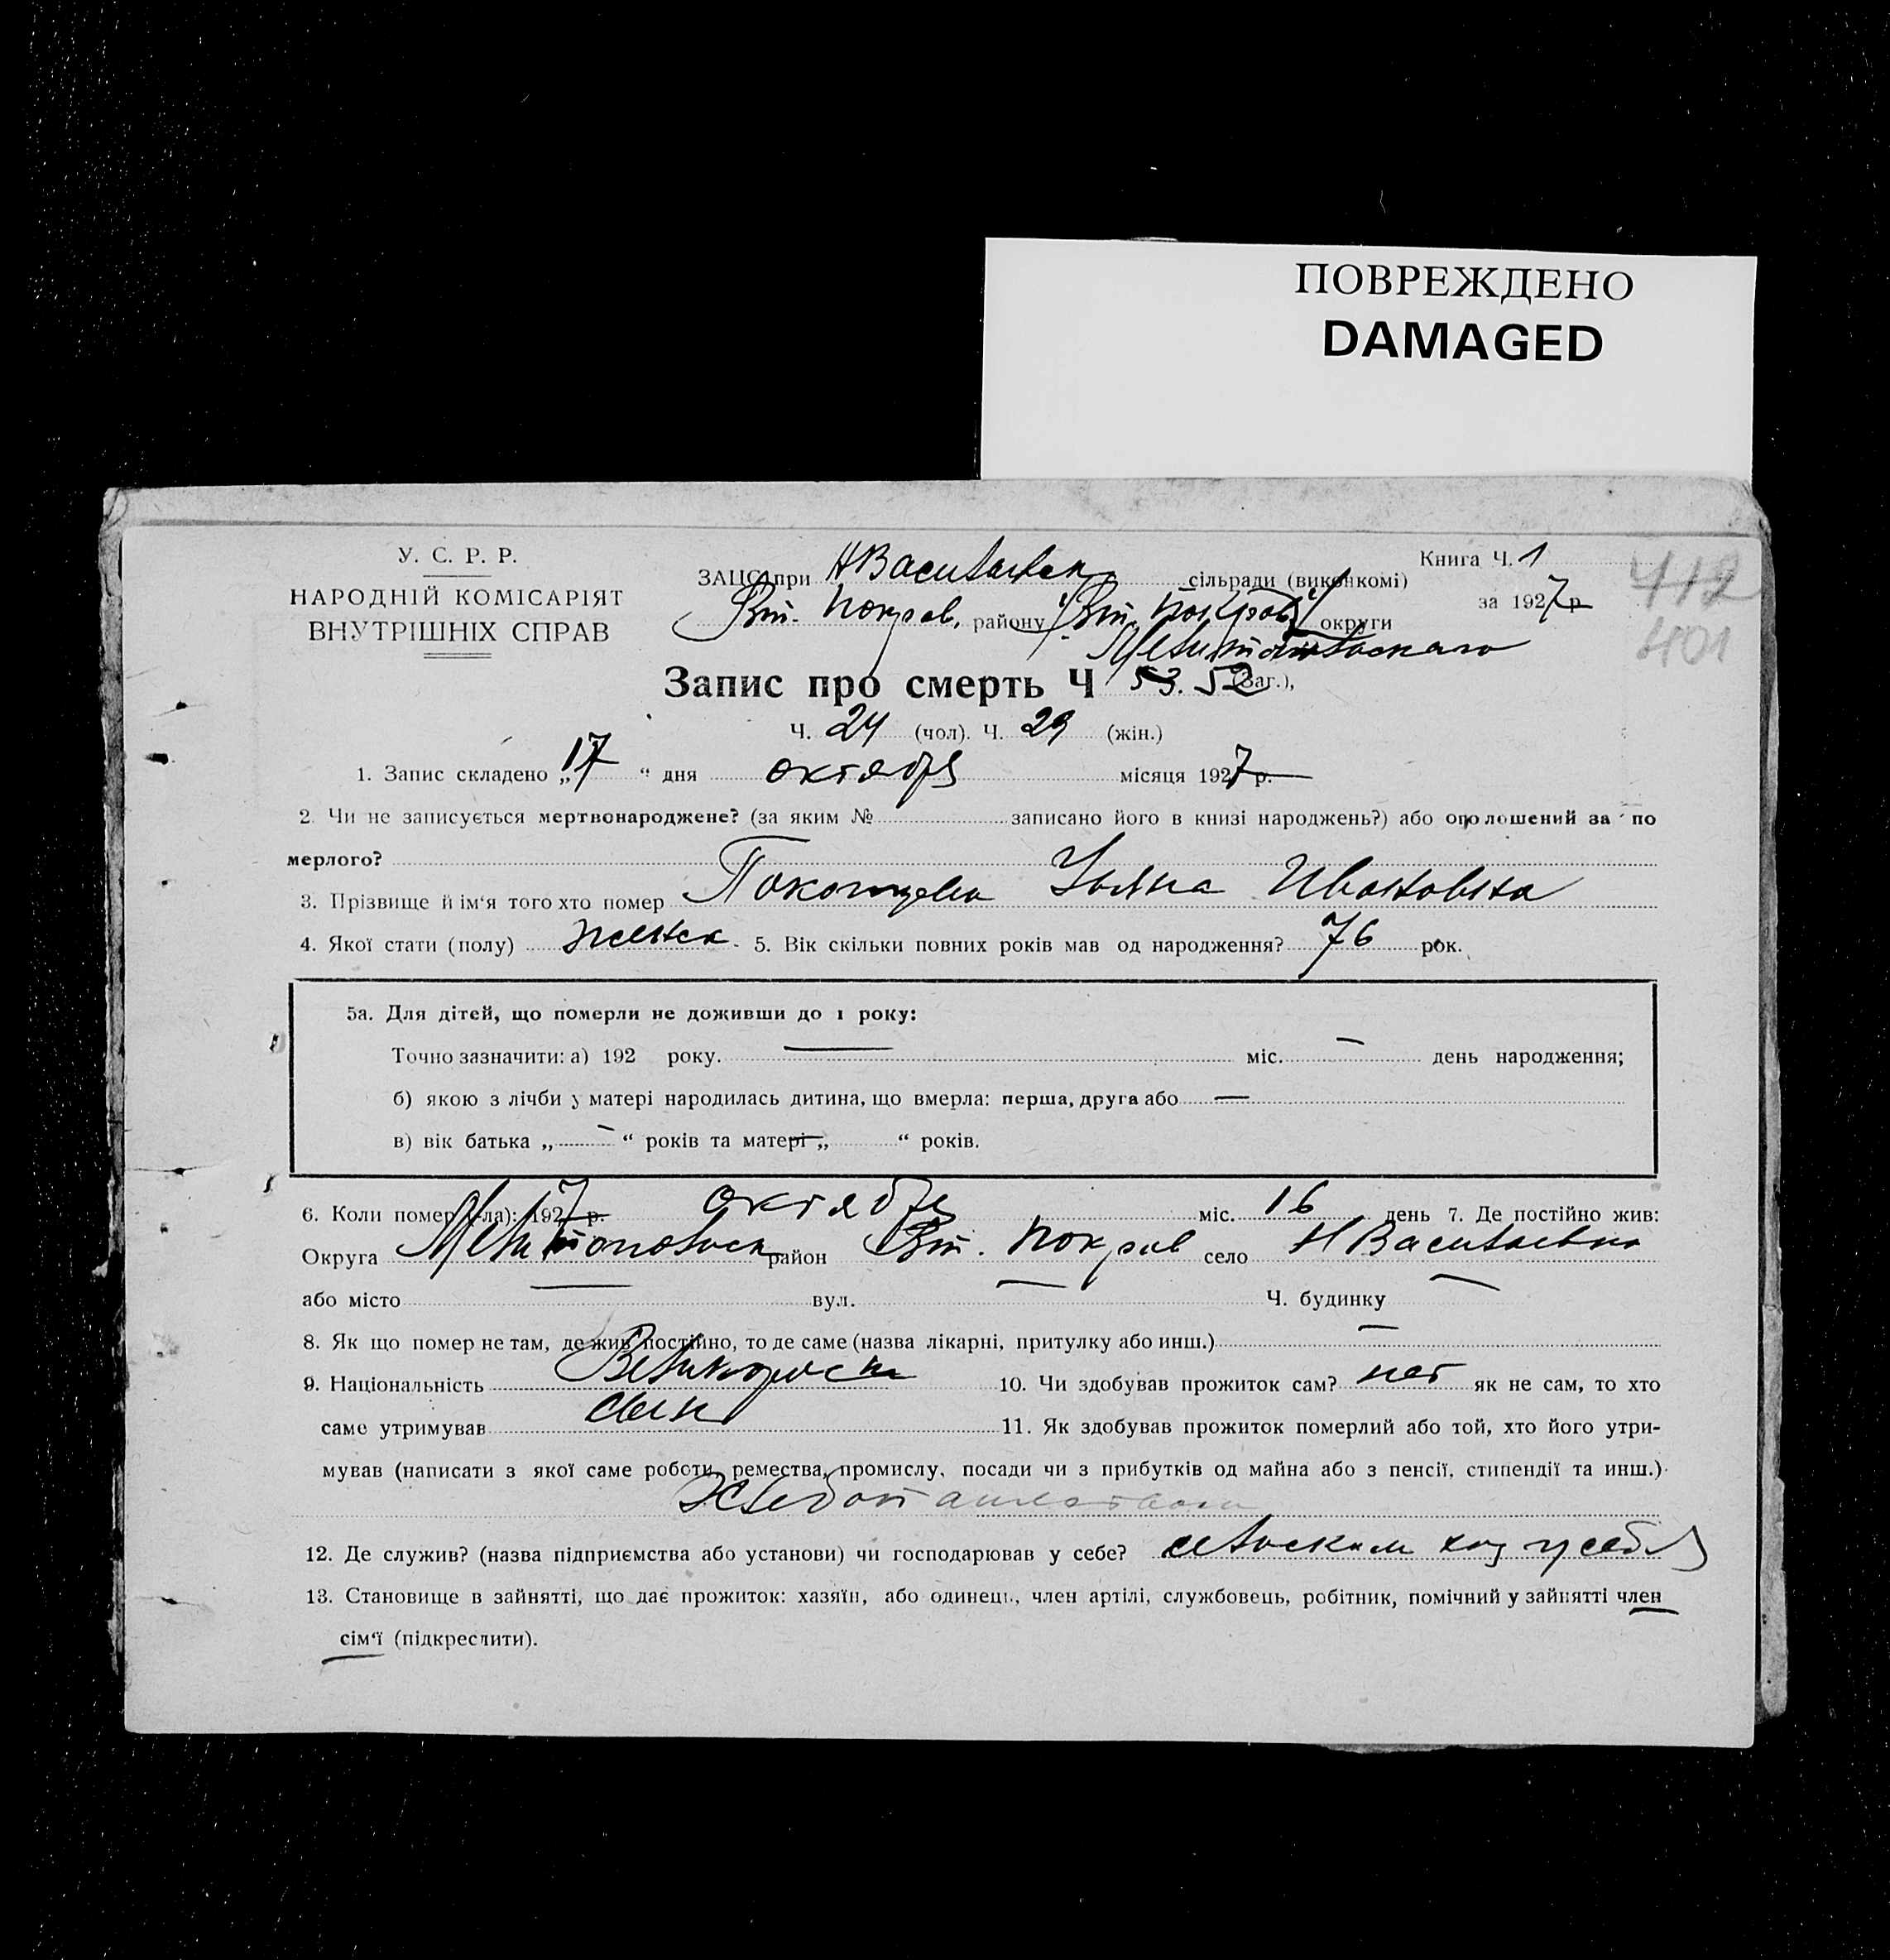 ПОВРЕЖДЕНО
DAMAGED
У. С. Р. Р.
НАРОДНІЙ КОМІСАРІЯТ
ВНУТРІШНІХ СПРАВ
Книга Ч. 1
за 1927 р.
412
401
ЗАЦС при Н Васильевск сільради (виконкомі)
Вт. Покров. району Вт. Покров округи
Мелитопольского
Запис про смерть Ч 53. 52 (Заг.),
Ч. 24 (чол). Ч. 29 (жін.)
1. Запис складено „17“ дня октября місяця 1927 р.
2. Чи не записується мертвонароджене? (за яким № записано його в книзі народжень?) або оголошений за по
мерлого?
3. Прізвище й ім‘я того хто помер Ульяна Ивановна
4. Якої стати (полу) женск. 5. Вік скільки повних років мав од народження? 76 рок.
5а. Для дітей, що померли не доживши до 1 року:
Точно зазначити: а) 192 року. — міс. — день народження;
б) якою з лічби у матері народилась дитина, що вмерла: перша, друга або —
в) вік батька „ — “ років та матері „ — “ років.
6. Коли помер (-ла): 1927 р. октября міс. 16 день 7. Де постійно жив:
Округа Мелитопольск район Вт. Покров село Н Васильевка
або місто — вул. — Ч. будинку —
8. Як що помер не там, де жив постійно, то де саме (назва лікарні, притулку або инш.) —
9. Національність Великоросска 10. Чи здобував прожиток сам? нет як не сам, то хто
саме утримував сын 11. Як здобував прожиток померлий або той, хто його утри-
мував (написати з якої саме роботи, ремества, промислу, посади чи з прибутків од майна або з пенсії, стипендії та инш.)
Хлебопашеством
12. Де служив? (назва підприємства або установи) чи господарював у себе? сельским хоз у себя
13. Становище в зайнятті, що дає прожиток: хазяїн, або одинець, член артілі, службовець, робітник, помічний у зайнятті член
сім‘ї (підкреслити).